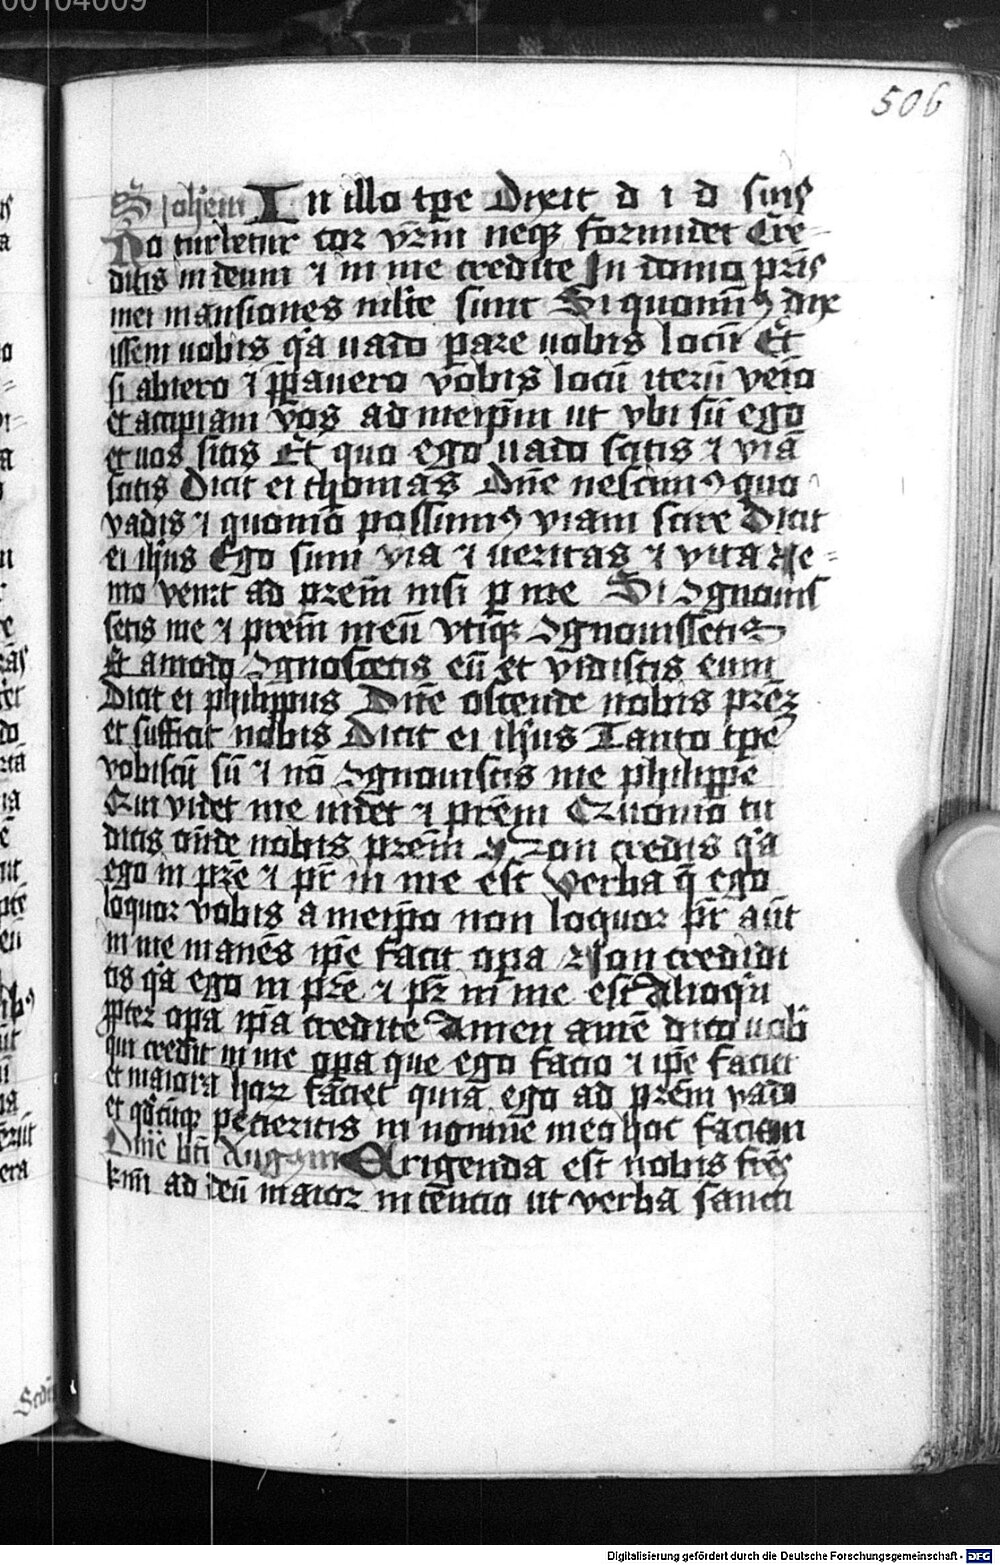 506
S Joh̄em In illo tp̄e Dixit d i d suis
No turbetur cor vr̄m neqꝫ formidet Cre-
ditis in deum ⁊ in me credite In domo pr̄is
mei mansiones ml̄te sunt Si quomīꝰ dix
issem uobis qͣa uado parare uobis locū Et
si abiero ⁊ p̄pauero vobis locū iterū veīo
et accipiam vōs ad meip̄m ut vbi sū ego
et uos sitis Et quo ego uado scitis ⁊ viā
scitis Dicit ei thomas Dn̄e nescimꝰ quo
vadis ⁊ quomō possumꝰ viam scire Dicit
ei ih̄us Ego sum via ⁊ ueritas ⁊ vita Ne-
mo venit ad prem̄ nisi ꝑ me Si ꝯgnouis
setis me ⁊ prem̄ meū vtiqꝫ ꝯgnouissetis
Et amodo ꝯgnoscetis eū et vidistis eum
Dicit ei philippus Dn̄e ostende nobis prē̄
et sufficit nobis Dicit ei ih̄us Tanto tp̄e
vobiscū sū ⁊ nō ꝯgnouistis me philippe
Qui videt me uidet ⁊ prēm Quomō tu
dicis on̄de nobis prem̄ Non credis qͣa
ego in pr̄e ⁊ pr̄ in me est Verba q̄ ego
loquor vobis a meip̄o non loquor pr̄ aūt
in me manēs ip̄e facit oꝑa Non credidi
tis qͣa ego in pr̄e ⁊ pr̄ in me est Alioqͥn
ꝓpter oꝑa ip̄a credite Amen amē dico uob̄
qui credit in me oꝑa que ego facio ⁊ ip̄e faciet
et maiora hoꝝ faciet quia ego ad prēm vado
et qͦdcūqꝫ petieritis in nomine meo hoc faciam
Erigenda est nobis fr̄es
kmī ad deū maior intēncio ut verba sancti
00104009
Digitalisierung gefördert durch die Deutsche Forschungsgemeinschaft - DFG